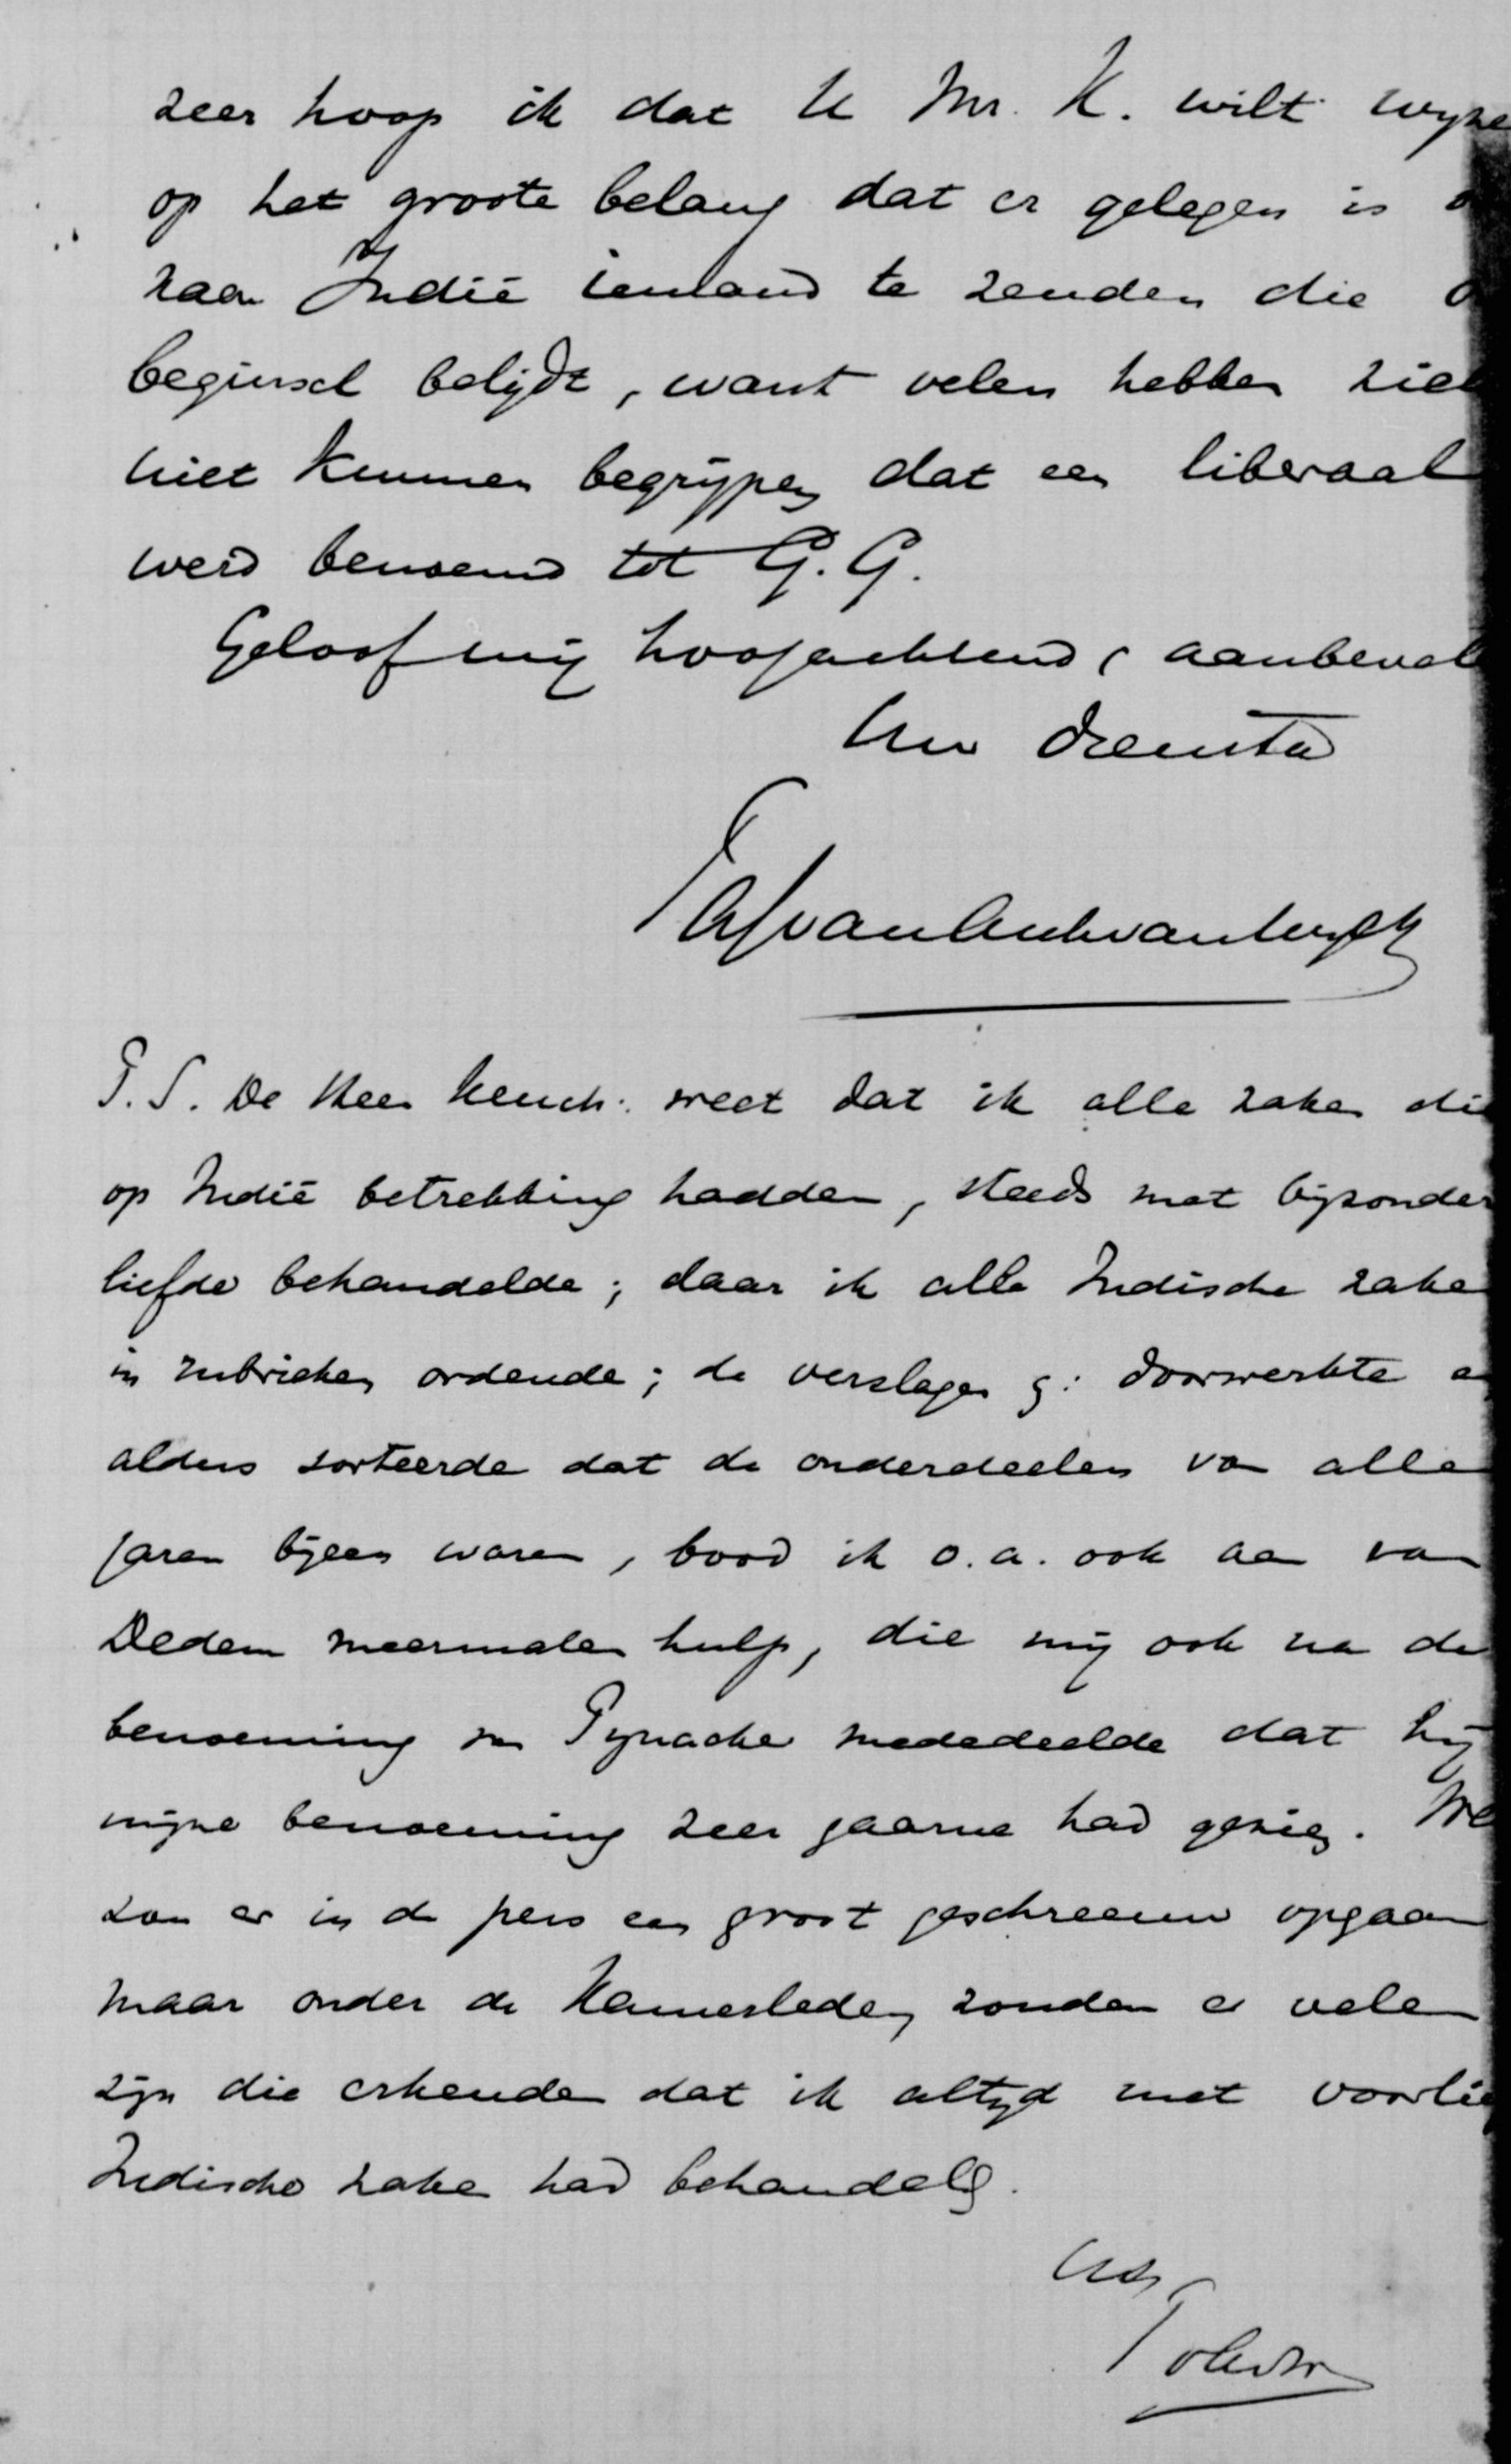 zeer hoop ik dat U Mr. K. wilt wijze
op het groote belang dat er gelegen is o
naar Indië iemand te zenden die o
beginsel belijdt, want velen hebben zich
niet kunnen begrijpen dat een liberaal
werd benoemd tot G.G.
Geloof mij hoogachtend, aanbevel
Uw dienstd
P.S. De Heer Keuch. weet dat ik alle zaken die
op Indië betrekking hadden, steeds met bijzonder
liefde behandelde; daar ik alle Indische zake
in rubrieken ordende; de verslagen doorwerkte e
aldus sorteerde dat de onderdeelen van alle
jaren bijeen waren, bood ik o.a. ook aan van
Dedem meermalen hulp, die mij ook na de
benoeming van Pynacker mededeelde dat hij
mijne benoeming zeer gaarne had gezien. We
zou er in de pers een groot geschreeuw opgaan
maar onder de Kamerleden zouden er velen
zijn die erkenden dat ik altijd met voorlie
Indische zaken had behandeld.